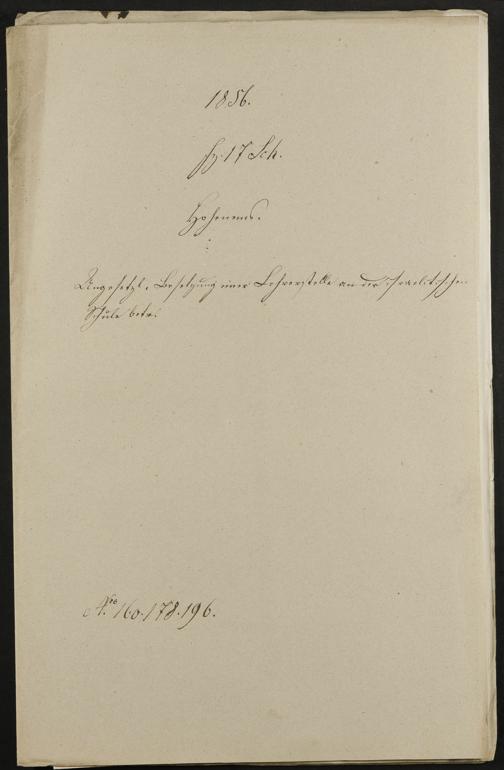 1856.
fz. 17 Sch.
Hohenems.
Ungesetzl. Besetzung einer Lehrerstelle an der israelitischen
Schule betr.
Nro 160. 178. 196.